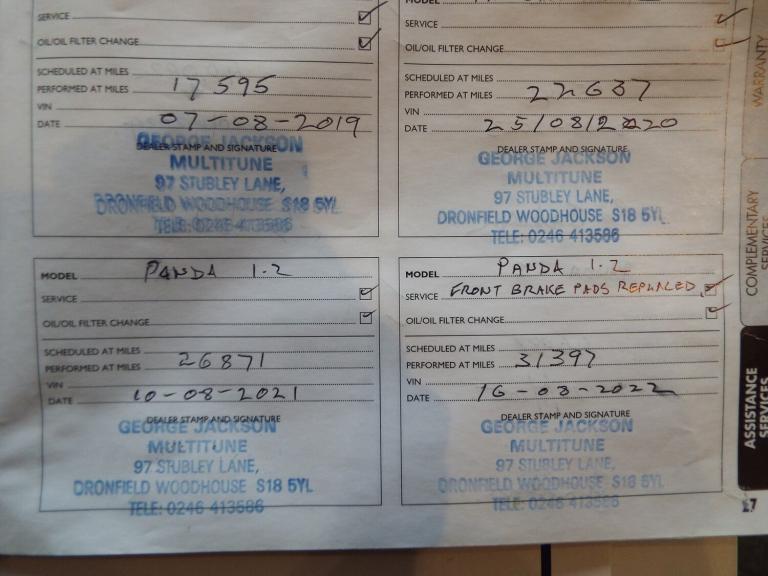 SERVICE
OIL/OIL FILTER CHANGE
SCHEDULED AT MILES
PERFORMED AT MILES 17595
VIN
DATE 07-08-2019
DEALER STAMP AND SIGNATURE
GEORGE JACKSON
MULTITUNE
97 STUBLEY LANE,
DRONFIELD WOODHOUSE S18 5YL
TELE: 0246 413586
MODEL
SERVICE
OIL/OIL FILTER CHANGE
SCHEDULED AT MILES
PERFORMED AT MILES 22637
VIN
DATE 25/08/2020
DEALER STAMP AND SIGNATURE
GEORGE JACKSON
MULTITUNE
97 STUBLEY LANE,
DRONFIELD WOODHOUSE S18 5YL
TELE: 0246 413586
MODEL PANDA 1.2
SERVICE
OIL/OIL FILTER CHANGE
SCHEDULED AT MILES
PERFORMED AT MILES 26871
VIN
DATE 10-08-2021
DEALER STAMP AND SIGNATURE
GEORGE JACKSON
MULTITUNE
97 STUBLEY LANE,
DRONFIELD WOODHOUSE S18 5YL
TELE: 0246 413586
MODEL PANDA 1.2
SERVICE FRONT BRAKE PADS REPLACED.
OIL/OIL FILTER CHANGE
SCHEDULED AT MILES
PERFORMED AT MILES 31397
VIN
DATE 16-08-2022
DEALER STAMP AND SIGNATURE
GEORGE JACKSON
MULTITUNE
97 STUBLEY LANE,
DRONFIELD WOODHOUSE S18 5YL
TELE: 0246 413586
WARRANTY
COMPLEMENTARY
SERVICES
ASSISTANCE
SERVICES